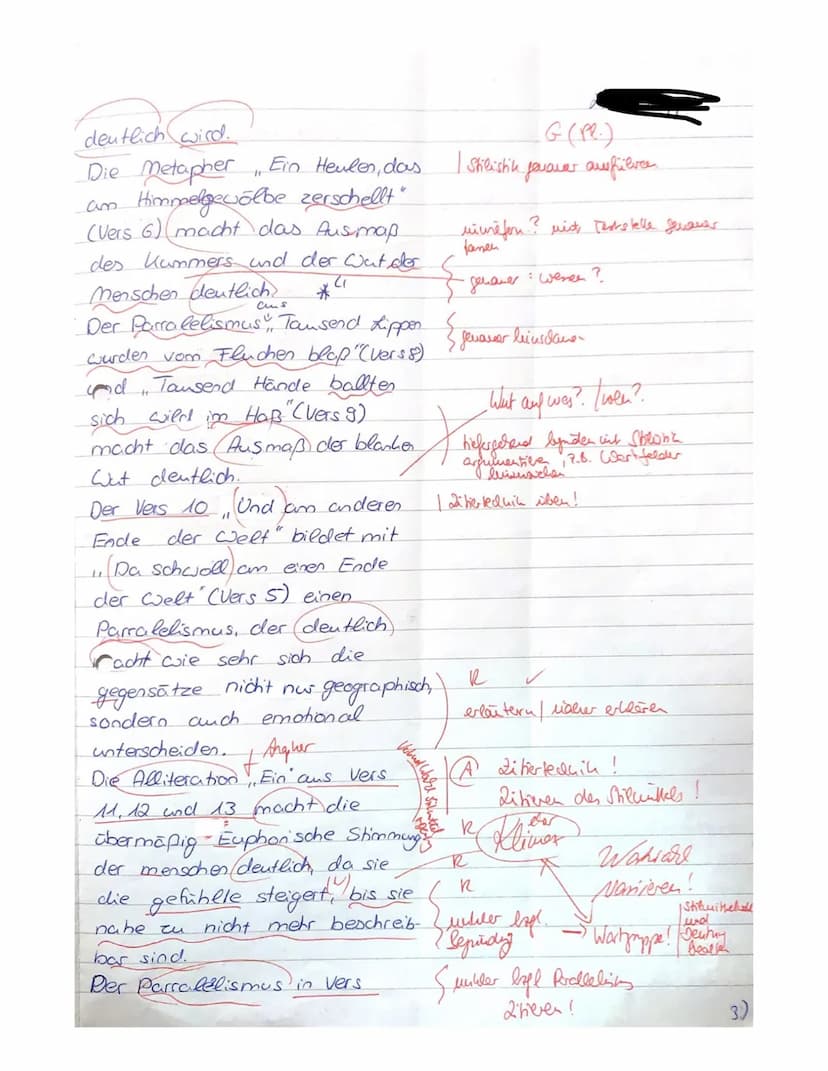 deutlich wird.
G (Pl.)
Die Metapher „Ein Heulen, das
Stilistik genauer ausführen
am Himmelgewölbe zerschellt"
(Vers 6) macht das Ausmaß
inwiefern? mit Textstelle genauer
des Kummers und der Wut der
genauer: wessen?
Menschen deutlich.
aus
Der Parralelismus „Tausend Lippen
genauer
wurden vom Fluchen blaß" (Vers 8)
und „Tausend Hände ballten
Wut auf was? / wen?
sich wild im Haß" (Vers 9)
macht das Ausmaß der blanken
tiefergehend
argumentieren, z.B. Wortfelder
Wut deutlich.
Der Vers 10 „Und am anderen
Zitiertechnik üben!
Ende der Welt" bildet mit
„Da schwoll am einen Ende
der Welt" (Vers 5) einen
Parralelismus, der deutlich
macht wie sehr sich die
R ✓
gegensätze nicht nur geographisch,
erläutern / näher erklären
sondern auch emotional
unterscheiden.
Anapher
Die Alliteration „Ein" aus Vers
A Zitiertechnik!
11, 12 und 13 macht die
Zitieren des Stilmittels!
übermäßig - Euphorische Stimmung
R der Klimax
der menschen deutlich, da sie
R Wortwahl
die gefühlle steigert, bis sie
R variieren!
nahe zu nicht mehr beschreib-
unklar bzgl.
Begründg → Wortgruppe!
und Deutung
bar sind.
Der Parralelismus in Vers
unklar bzgl Parallelismus
Zitieren!
3)